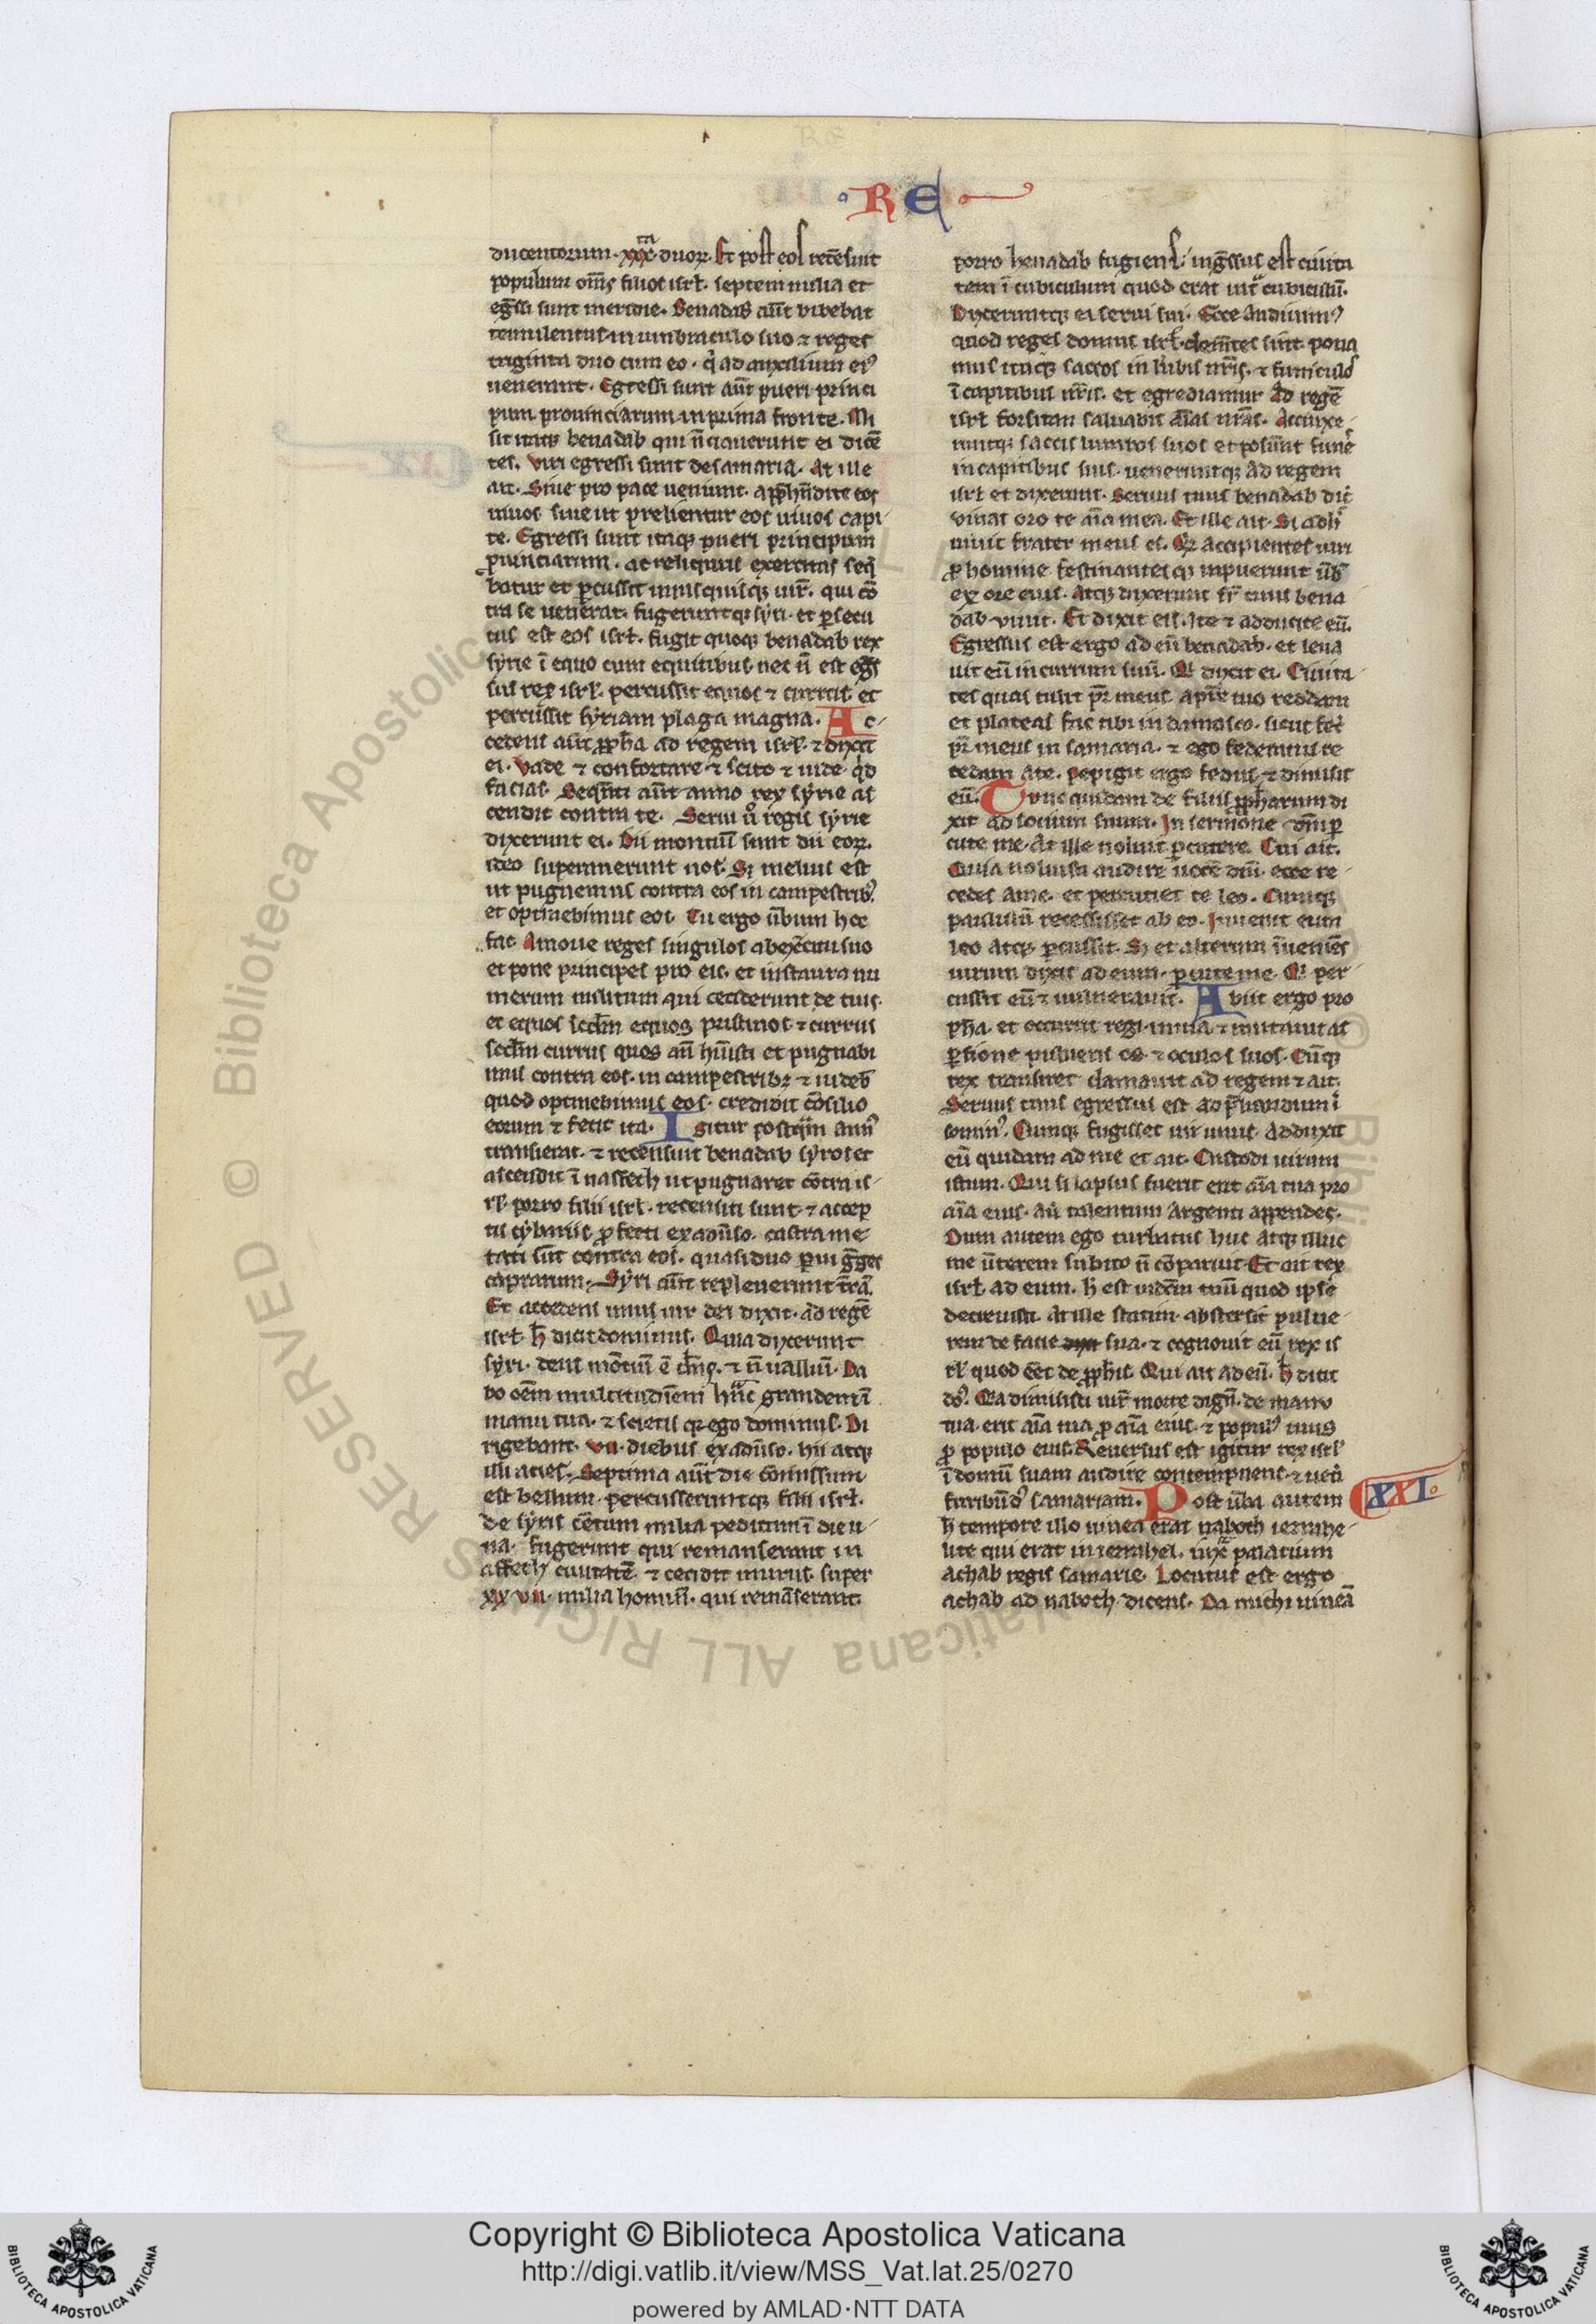 RE
ducentorum. xxx.ta duoꝝ. Et post eos recēsuit
populum om̄s filios isrl̄. septem milia et
eḡssi sunt meridie. Benadab aūt bibebat
temulentus in umbraculo suo ⁊ reges
triginta duo cum eo. q̇ ad auxilium eiꝰ
uenerant. Egressi sunt aūt pueri princi
pum prouinciarum in prima fronte. Mi
sit itaqꝫ benadab qui n̄ciauerunt ei dicē
tes. viri egressi sunt de samaria. At ille
ait. Siue pro pace ueniunt. app̄hn̄dite eos
uiuos siue ut prelientur eos uiuos capi
te. Egressi sunt itaqꝫ pueri principum
ꝓuinciarum. ac reliquus exercitus seq̄
batur et ꝑcussit unusquisqꝫ uir̄. qui cō
tra se uenerat. fugeruntqꝫ syri. et ꝑsecu
tus est eos isrl̄. fugit quoqꝫ benadab rex
syrie ī equo cum equitibus. nec n̄ est eḡs
sus rex isrl̄. percussit equos ⁊ currus. et
percussit syriam plaga magna. Ac
cedens aūt ꝓph̄a ad regem isrl̄. ⁊ dixit
ei. Vade ⁊ confortare ⁊ scito ⁊ uide qd̄
facias. Seqn̄ti aūt anno rex syrie as
cendit contra te. Serui ů regis syrie
dixerunt ei. Dii montiū sunt dii eoꝝ.
ideo superauerunt nos. Sꝫ melius est
ut pugnemus contra eos in campestribꝰ.
et optinebimus eos. Tu ergo ūbum hoc
fac. Amoue reges singulos ab ex̄citu suo
et pone principes pro eis. et instaura nu
merum militum qui ceciderunt de tuis.
et equos sed̄m equos pristinos ⁊ currus
sed̄m currus quos an̄ hūisti et pugnabi
mus contra eos. in campestribꝫ ⁊ uideb̄
quod optinebimus eos. credidit cōsilio
eorum ⁊ fecit ita. Igitur postqm̄ annꝰ
transierat. ⁊ recensuit benadab syros et
ascendit ī naffech ut pugnaret cōtra is
rl̄. porro filii isrl̄. recensiti sunt ⁊ accep
tis cybariis ꝓfecti ex adūso. castrame
tati sūt contra eos. quasi duo ꝑui ḡges
caprarum. Syri aūt repleuerunt t̄rā.
Et accedens unus uir dei dixit. ad regē
isrl̄. h̄ dicit dominus. Quia dixerunt
syri. deus mōtiū ē dn̄s. ⁊ n̄ ualliū. Da
bo oēm multitudīem hāc grandem ī
manu tua. ⁊ scietis qꝫ ego dominus. Di
rigebant. vii. diebus ex adūso. hii atqꝫ
illi acies. Septima aūt die cōmissum
est bellum. percusseruntqꝫ filii isrl̄.
de syris cētum milia peditum ī die u
na. fugerunt qui remanserant in
affech ciuitatē. ⁊ cecidit murus. super
xx vii. milia homiū. qui remāserant.
porro benadab fugiens. inḡssus est ciuita
tem ī cubiculum quod erat int̄ cubiculū.
Dixeruntqꝫ ei serui sui. Ecce audiuimꝰ
quod reges domus isrl̄. clemētes sint. pona
mus itaqꝫ saccos in lūbis nr̄is. ⁊ funiculos
ī capitibus nr̄is. et egrediamur ad regē
isrl̄ forsitan saluabit aīas nr̄as. Accinxe
runtqꝫ saccis lumbos suos et posūnt funes
in capitibus suis. ueneruntqꝫ ad regem
isrl̄ et dixerunt. Seruus tuus benadab dic̄
uiuat oro te aīa mea. Et ille ait. Si adh̄
uiuit frater meus es. Qꝫ accipientes uiri
ꝓ homine festinantesqꝫ rapuerunt ūb̄
ex ore eius. Atqꝫ dixerunt fr̄ tuus bena
dab viuit. Et dixit eis. Ite ⁊ adducite eū.
Egressus est ergo ad eū benadab. et leua
uit eū in currum suū. Qi dixit ei. Ciuita
tes quas tulit pr̄ meus. a pr̄e tuo reddam
et plateas fac tibi in damasco. sicut fec̄
pr̄ meus in samaria. ⁊ ego federatus re
cedam a te. pepigit ergo fedus ⁊ dimisit
eū. Tunc quidam de filiis ꝓph̄arum di
xit ad socium suum. In sermone dn̄i ꝑ
cute me. At ille noluit ꝑcutere. Cui ait.
Quia noluisti audire uocē dn̄i. ecce re
cedes a me. et percutiet te leo. Cumqꝫ
paululū recessisset ab eo. Inuenit eum
leo atqꝫ ꝑcussit. Sꝫ et alterum īueniēs
uirum dixit ad eum. ꝑcute me. Qi per
cussit eū ⁊ uulnerauit. Abiit ergo pro
ph̄a. et occurrit regi in uia ⁊ mutauit as
ꝑsione pulueris os ⁊ oculos suos. Cūqꝫ
rex transiret clamauit ad regem ⁊ ait.
Seruus tuus egressus est ad p̄liandum ī
cominꝰ. Cumqꝫ fugisset uir unus. adduxit
eū quidam ad me et ait. Custodi uirum
istum. Qui si lapsus fuerit erit aīa tua pro
aīa eius. aū talentum argenti appendes.
Dum autem ego turbatus huc atqꝫ illuc
me ūterem subito n̄ cōparuit. Et ait rex
isrl̄ ad eum. h̄ est iudiciū tuū quod ipse
decreuisti. At ille statim abstersit pulue
rem de facie sua. ⁊ cognouit eū rex is
rl̄ quod eēt de ꝓph̄is. Qui ait ad eū. h̄ dicit
dn̄s. Qa dimisisti uir̄ morte dignū. de manu
tua. erit aīa tua ꝓ aīa eius. ⁊ populꝰ tuus
ꝓ populo eius. Reuersus est igitur rex isrl̄
ī domū suam audire contempnens. ⁊ uen̄
furibūdꝰ samariam. Post ūba autem
CXXI.
h̄ tempore illo uinea erat naboth iezrahe
lite qui erat in iezrahel. iuxa palatium
achab regis samarie. Locutus est ergo
achab ad naboth dicens. Da michi uineā
© Biblioteca Apostolica Vaticana ALL RIGHTS RESERVED
Copyright © Biblioteca Apostolica Vaticana
http://digi.vatlib.it/view/MSS_Vat.lat.25/0270
powered by AMLAD·NTT DATA
BIBLIOTECA APOSTOLICA VATICANA
BIBLIOTECA APOSTOLICA VATICANA